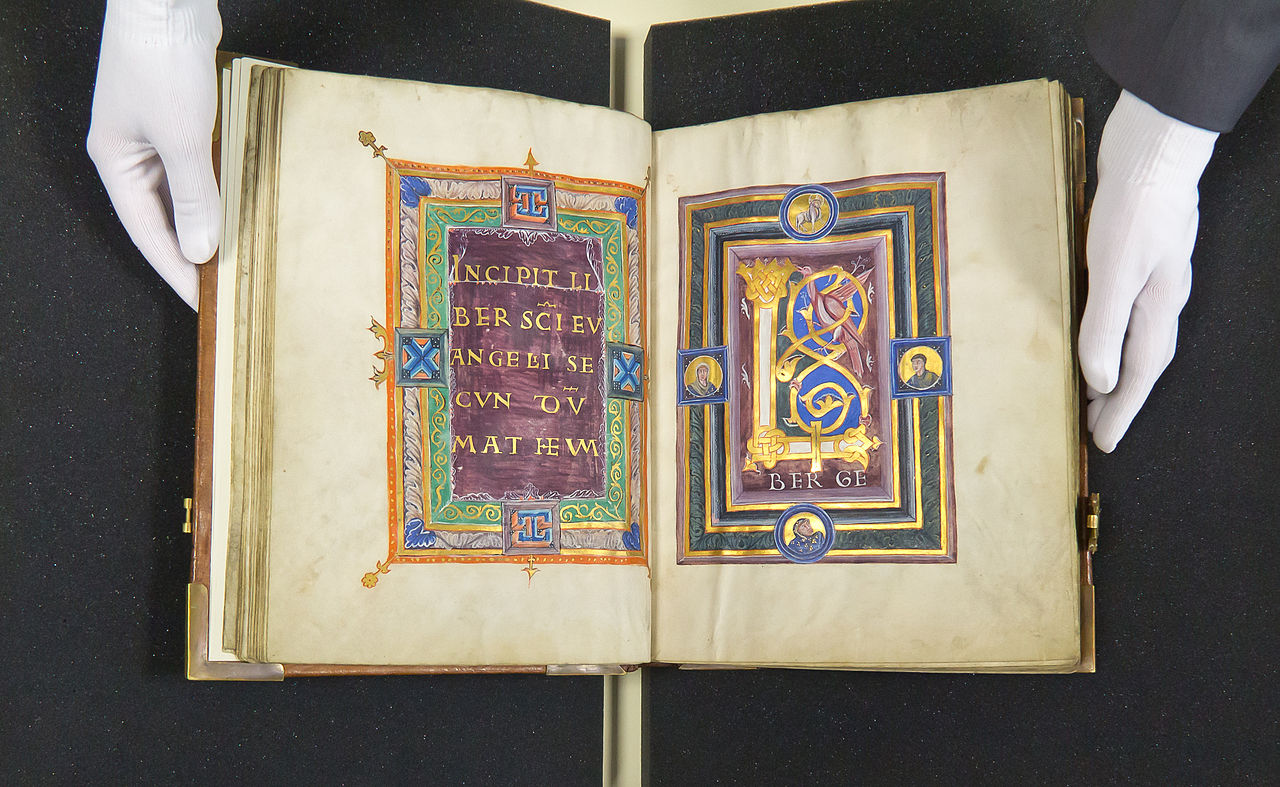 INCIPIT LI
BER SC̄I EV
ANGELII SE
CVN DV̄
MATHEVM
LI
BER GE